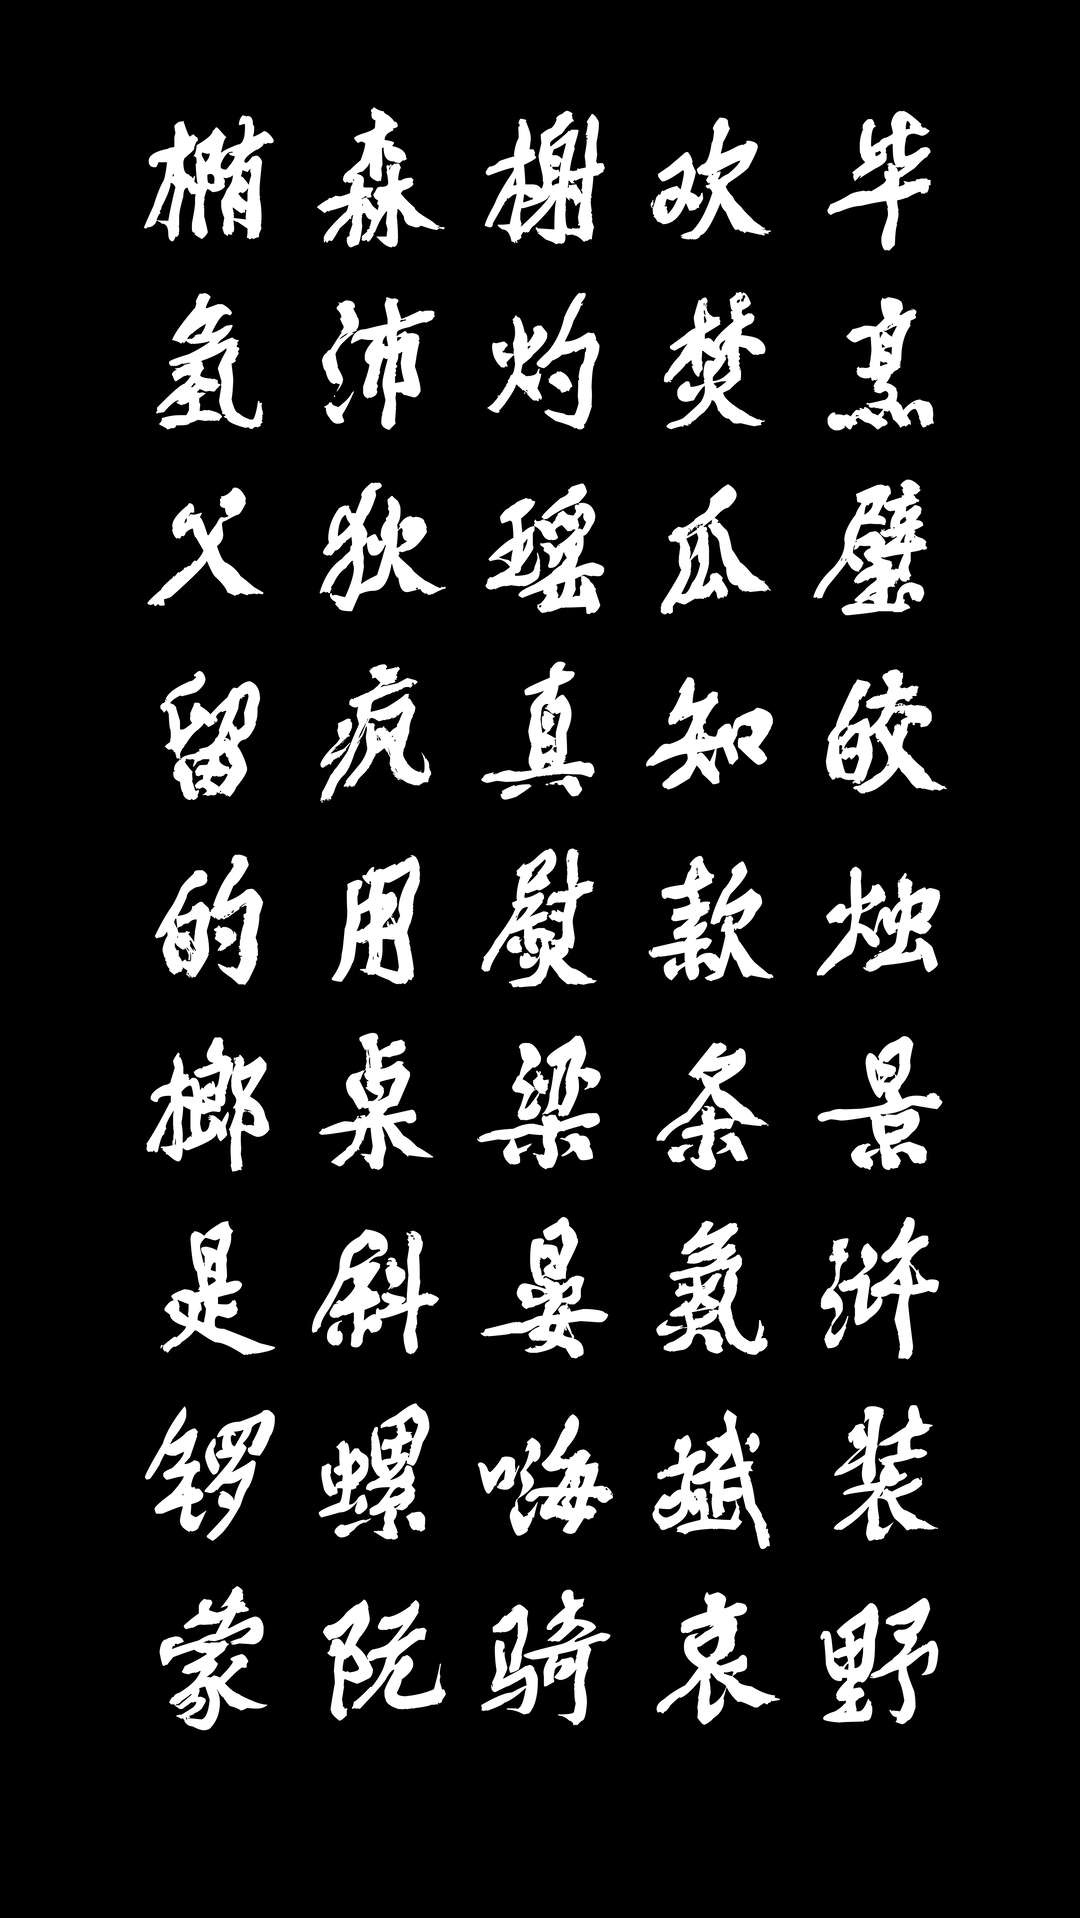 椭森榭欢毕
氢沛灼焚烹
父狄瑶瓜壁
留疯真知皎
的用熨款烛
榔桌梁条景
是斜晏氮浒
锣螺嗨斌装
蒙阮骑哀野